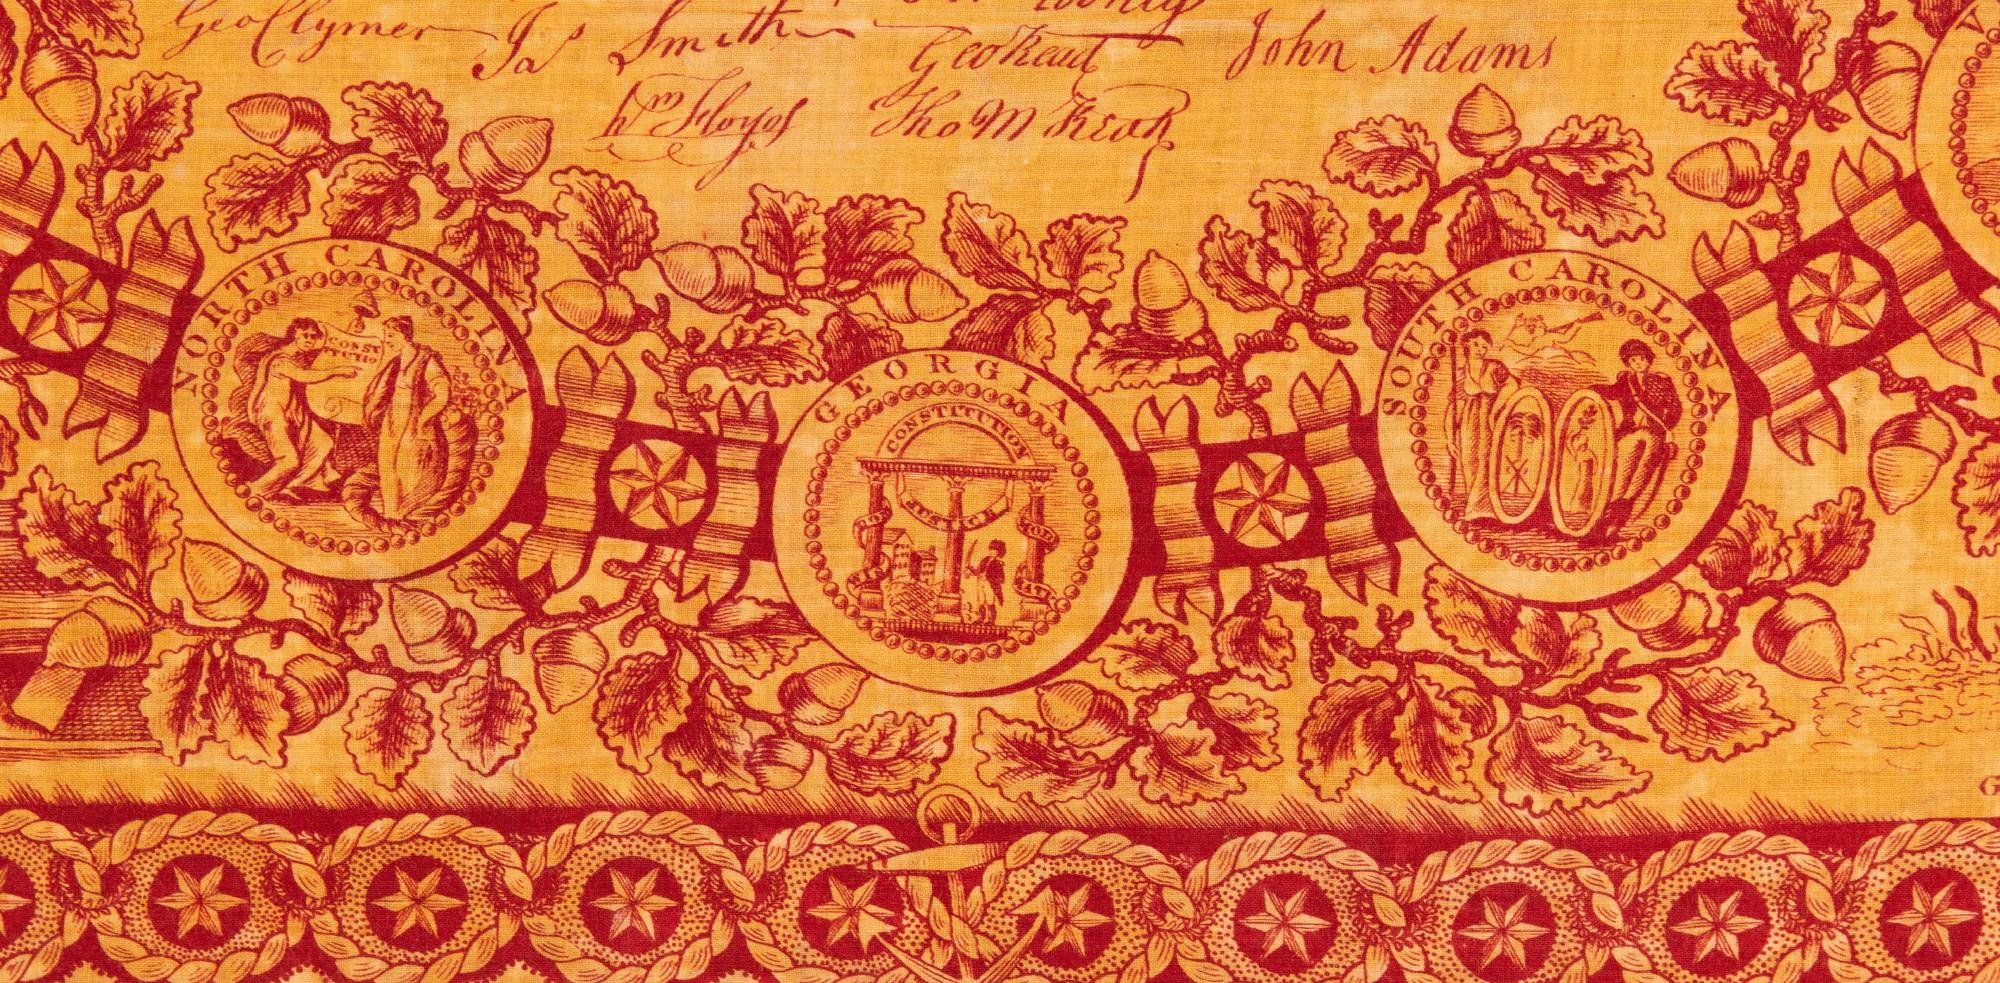 Geo Clymer Jas Smith
Geo Read John Adams
Wm Floyd Tho M Kean
NORTH CAROLINA
CONSTITUTION
GEORGIA
CONSTITUTION
JUSTICE
SOUTH CAROLINA
G